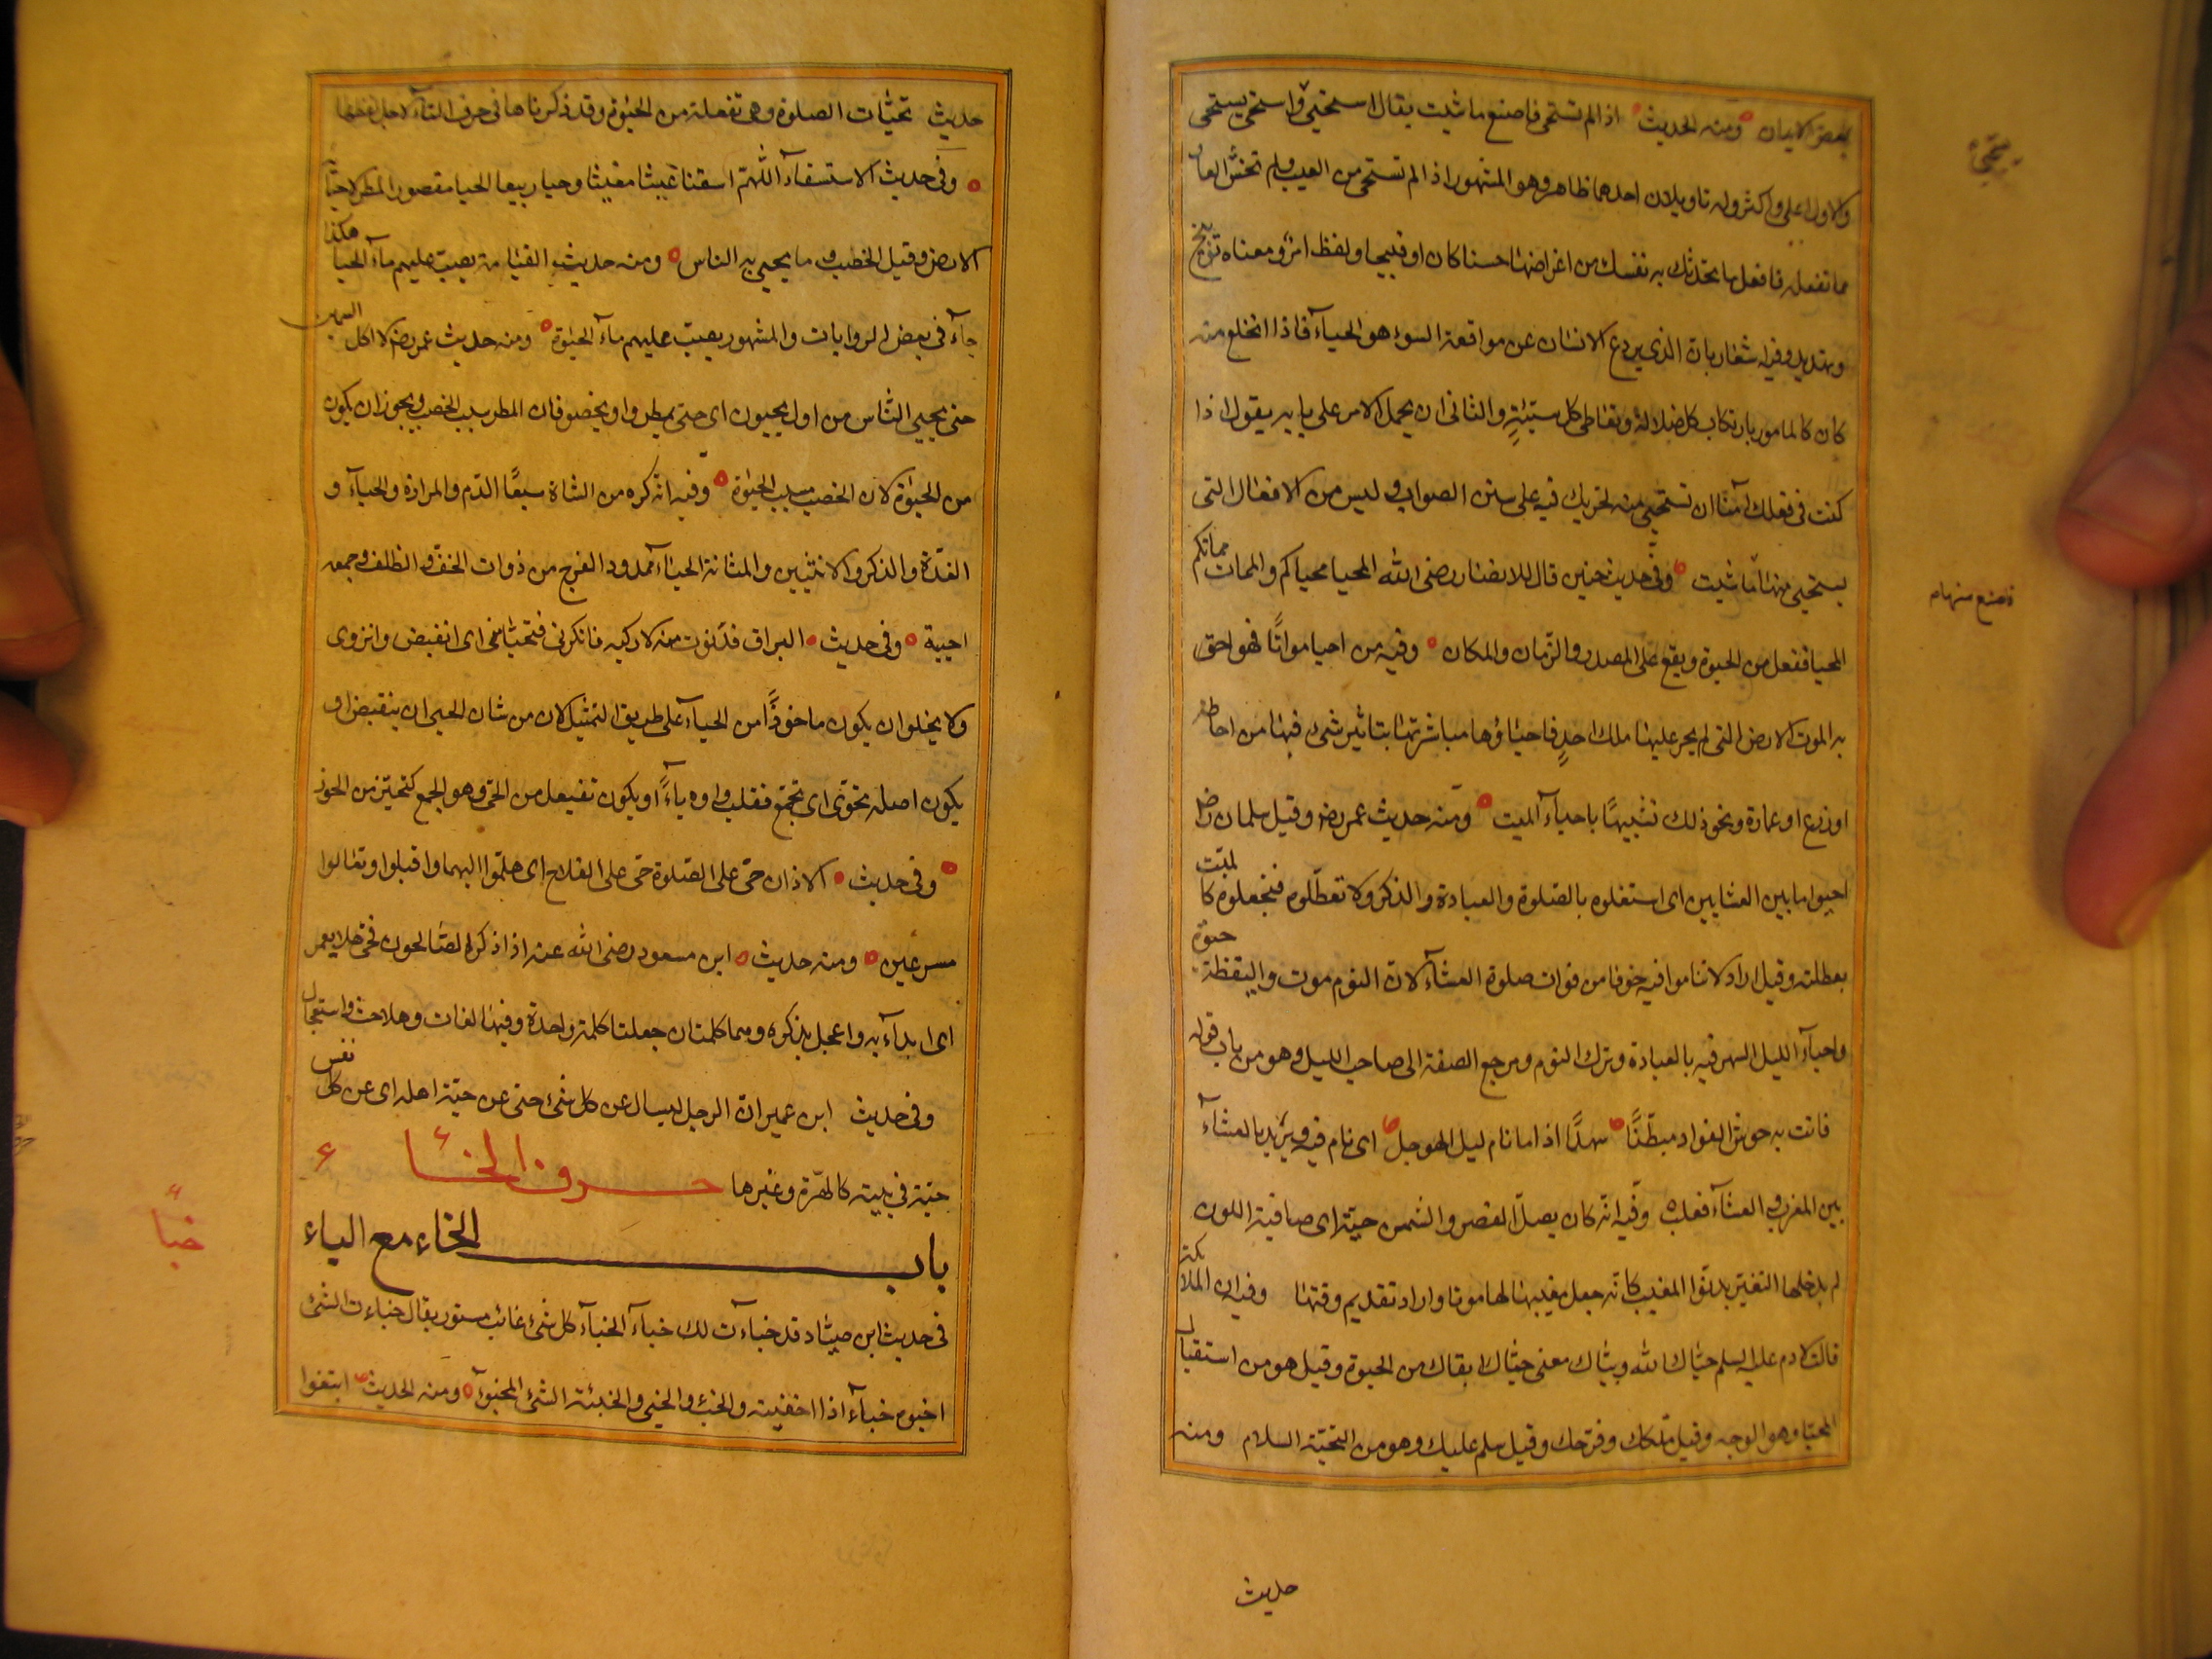 بعض الايمان ومنه الحديث اذا لم تستحى فاصنع ما شئت يقال استحيى واستحى يستحى
والاول اعلى واكثر وله تاويلان احدهما ظاهر وهو المشهور اذا لم تستحى من العيب ولم تخش العار
مما تفعله فافعل ما تحدثك به نفسك من اغراضها حسنا كان او قبيحا ولفظ امر ومعناه توبيخ
وتهديد وفيه اشعار بان الذي يردع الانسان عن مواقعة السوء هو الحياء فاذا انخلع منه
كان كالمامور بارتكاب كل ضلالة وتعاطى كل سيئة والثانى ان يحمل الامر على بابه يقول اذا
كنت فى فعلك آمنا ان تستحيى منه لجريك فيه على سنن الصواب وليس من الافعال التى
يستحيى منها ما شئت وفى حديث حنين قال للانصار رضى الله المحيا محياكم والممات مماتكم
المحيا مفعل من الحيوة ويقع على المصدر والزمان والمكان وفيه من احيا مواتا فهو احق
به الموت الارض التى لم يجر عليها ملك احد فاحياؤها مباشرتها بتاثير شئ فيها من احاطة
او زرع او عمارة ونحو ذلك تشبيها باحياء الميت ومنه حديث عمر رض وقيل سلمان رض
احيوا ما بين العشايين اى استغلوه بالصلوة والعبادة والذكر ولا تعطلوه فتجعلوه كالميت
بعطلته وقيل اراد لا تناموا فيه خوفا من فوات صلوة العشاء لان النوم موت واليقظة حيوة
واحياء الليل السهر فيه بالعبادة وترك النوم ومرجع الصفة الى صاحب الليل وهو من باب قوله
فاتت به حوش الفواد مبطنا سهدا اذا ما نام ليل الهوجل اى نام فيه ويريد بالعشاء
بين المغرب والعشاء فغلب وفيه انه كان يصلى العصر والشمس حية اى صافية اللون
لم يدخلها التغير بدنو المغيب كانه جعل مغيبها لها موتا واراد تقديم وقتها وفيه ان الملائكة
قالت لادم عليه السلم حياك الله وبياك معنى حياك ابقاك من الحيوة وقيل هو من استقبال
المحيا وهو الوجه وقيل ملكك وفرحك وقيل سلم عليك وهو من التحية السلام ومنه
حديث
فاصنع منها
حديث تحيات الصلوة وهى تفعلة من الحيوة وقد ذكرناها فى حرف التاء لاجل لفظها
وفى حديث الاستسقاء اللهم اسقنا غيثا مغيثا وحيا ربيعا الحيا مقصور المطر لاحيائه
الارض وقيل الخصب وما يحيى به الناس ومنه حديث القيامة يصب عليهم ماء الحيا هكذا
جاء فى بعض الروايات والمشهور يصب عليهم ماء الحيوة ومنه حديث عمر رض لا اكل السمن
حتى يحيى الناس من اول يحيون اى حتى يمطروا ويخصبو فان المطر سبب الخصب ويجوز ان يكون
من الحيوة لان الخصب سبب الحيوة وفيه انه كره من الشاة سبعا الدم والمرارة والحياء و
الغدة والذكر والانثيين والمثانة الحياء ممدود الفرج من ذوات الخف والظلف وجمعه
احيية وفى حديث البراق فدنوت منه لاركبه فانكرنى فتحيا منى اى انقبض وانزوى
ولا يخلو ان يكون ماخوذا من الحياء على طريق التمثيل لان من شان الحيى ان ينقبض او
يكون اصله تحوى اى تجمع فقلب واوه ياء او يكون تفيعل من الحى وهو الجمع كتحيز من الحوز
وفى حديث الاذان حى على الصلوة حى على الفلاح اى هلموا اليهما واقبلوا وتعالوا
مسرعين ومنه حديث ابن مسعود رضى الله عنه اذا ذكر الصالحون فحى هلا بعمر
اى ابداء به واعجل بذكره وهما كلمتان جعلتا كلمة واحدة وفيها لغات وهلا حث واستعجال
وفى حديث ابن عمير ان الرجل ليسال عن كل شئ حتى عن حية اهله اى عن كل نفس
حية فى بيته كالهرة وغيرها حرف الخاء
باب الخاء مع الباء
خبأ
فى حديث ابن صياد قد خباءت لك خباء الخباء كل شئ غائب مستور يقال خباءت الشئ
اخبوه خباء اذا اخفيته والخبء والخبى والخبيئة الشئ المخبوء ومنه الحديث ابتغوا